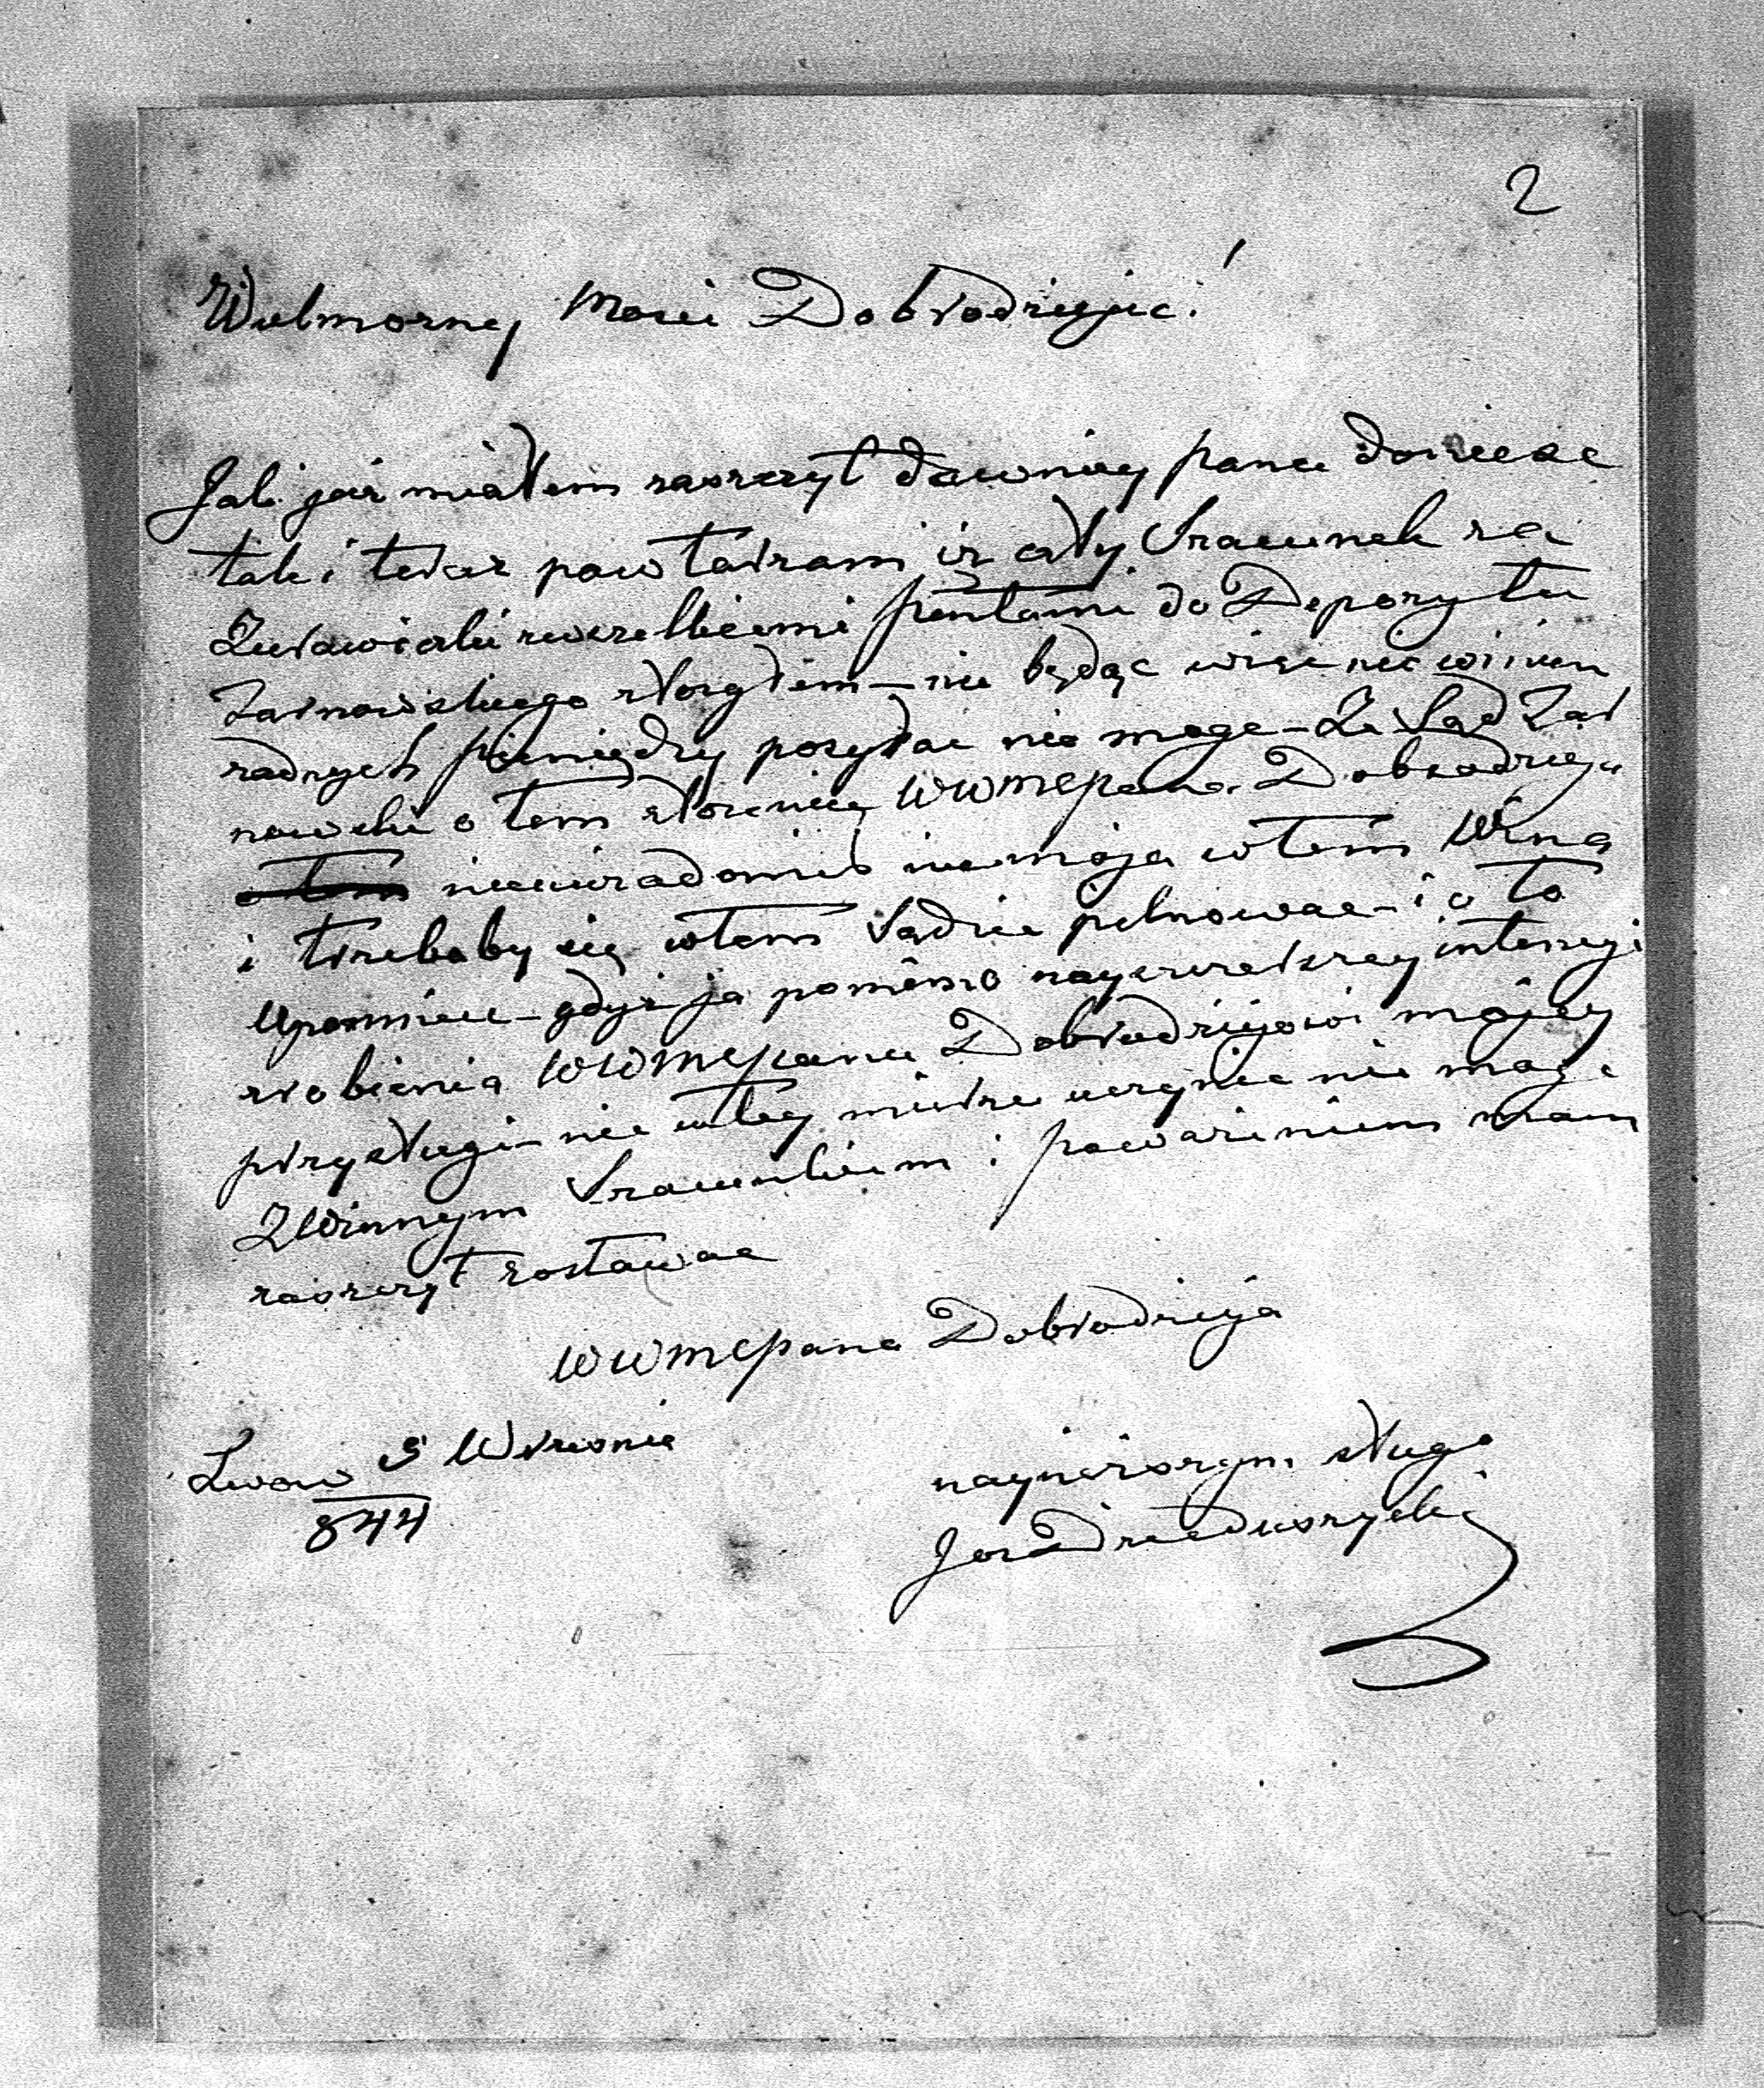 2
Wielmożny Mości Dobrodzieju!
Jak już miałem zaszczyt dawniey panu donieść
tak i teraz powtarzam iż cały Szacunek za
Zurawiczki zwszelkiemi do Depozytu
Tarnowskiego złożyłem – nie będąc więc nic winien
żadnych pieniędzy posyłać nie moge – Ze Sąd Tar
nowski o tem złożeniu WWMCpana Dobrodzieja
o tem nieuwiadomił nie moja wtem Wina
i trzebaby się wtem Sądzie pilnować – i o to
upomnieć – gdyż ja pomimo nayszczerszey intencyi
zrobienia WWMCpanu Dobrodziejowi mojey
przysługi – nic wtey mierze uczynić nie mogę
Zwinnym Szacunkiem i poważeniem mam
zaszczyt zostawać
WWMCpana Dobrodzieja
Lwow 5 Września
844
nayniższym sługą
Jos Dzieduszycki